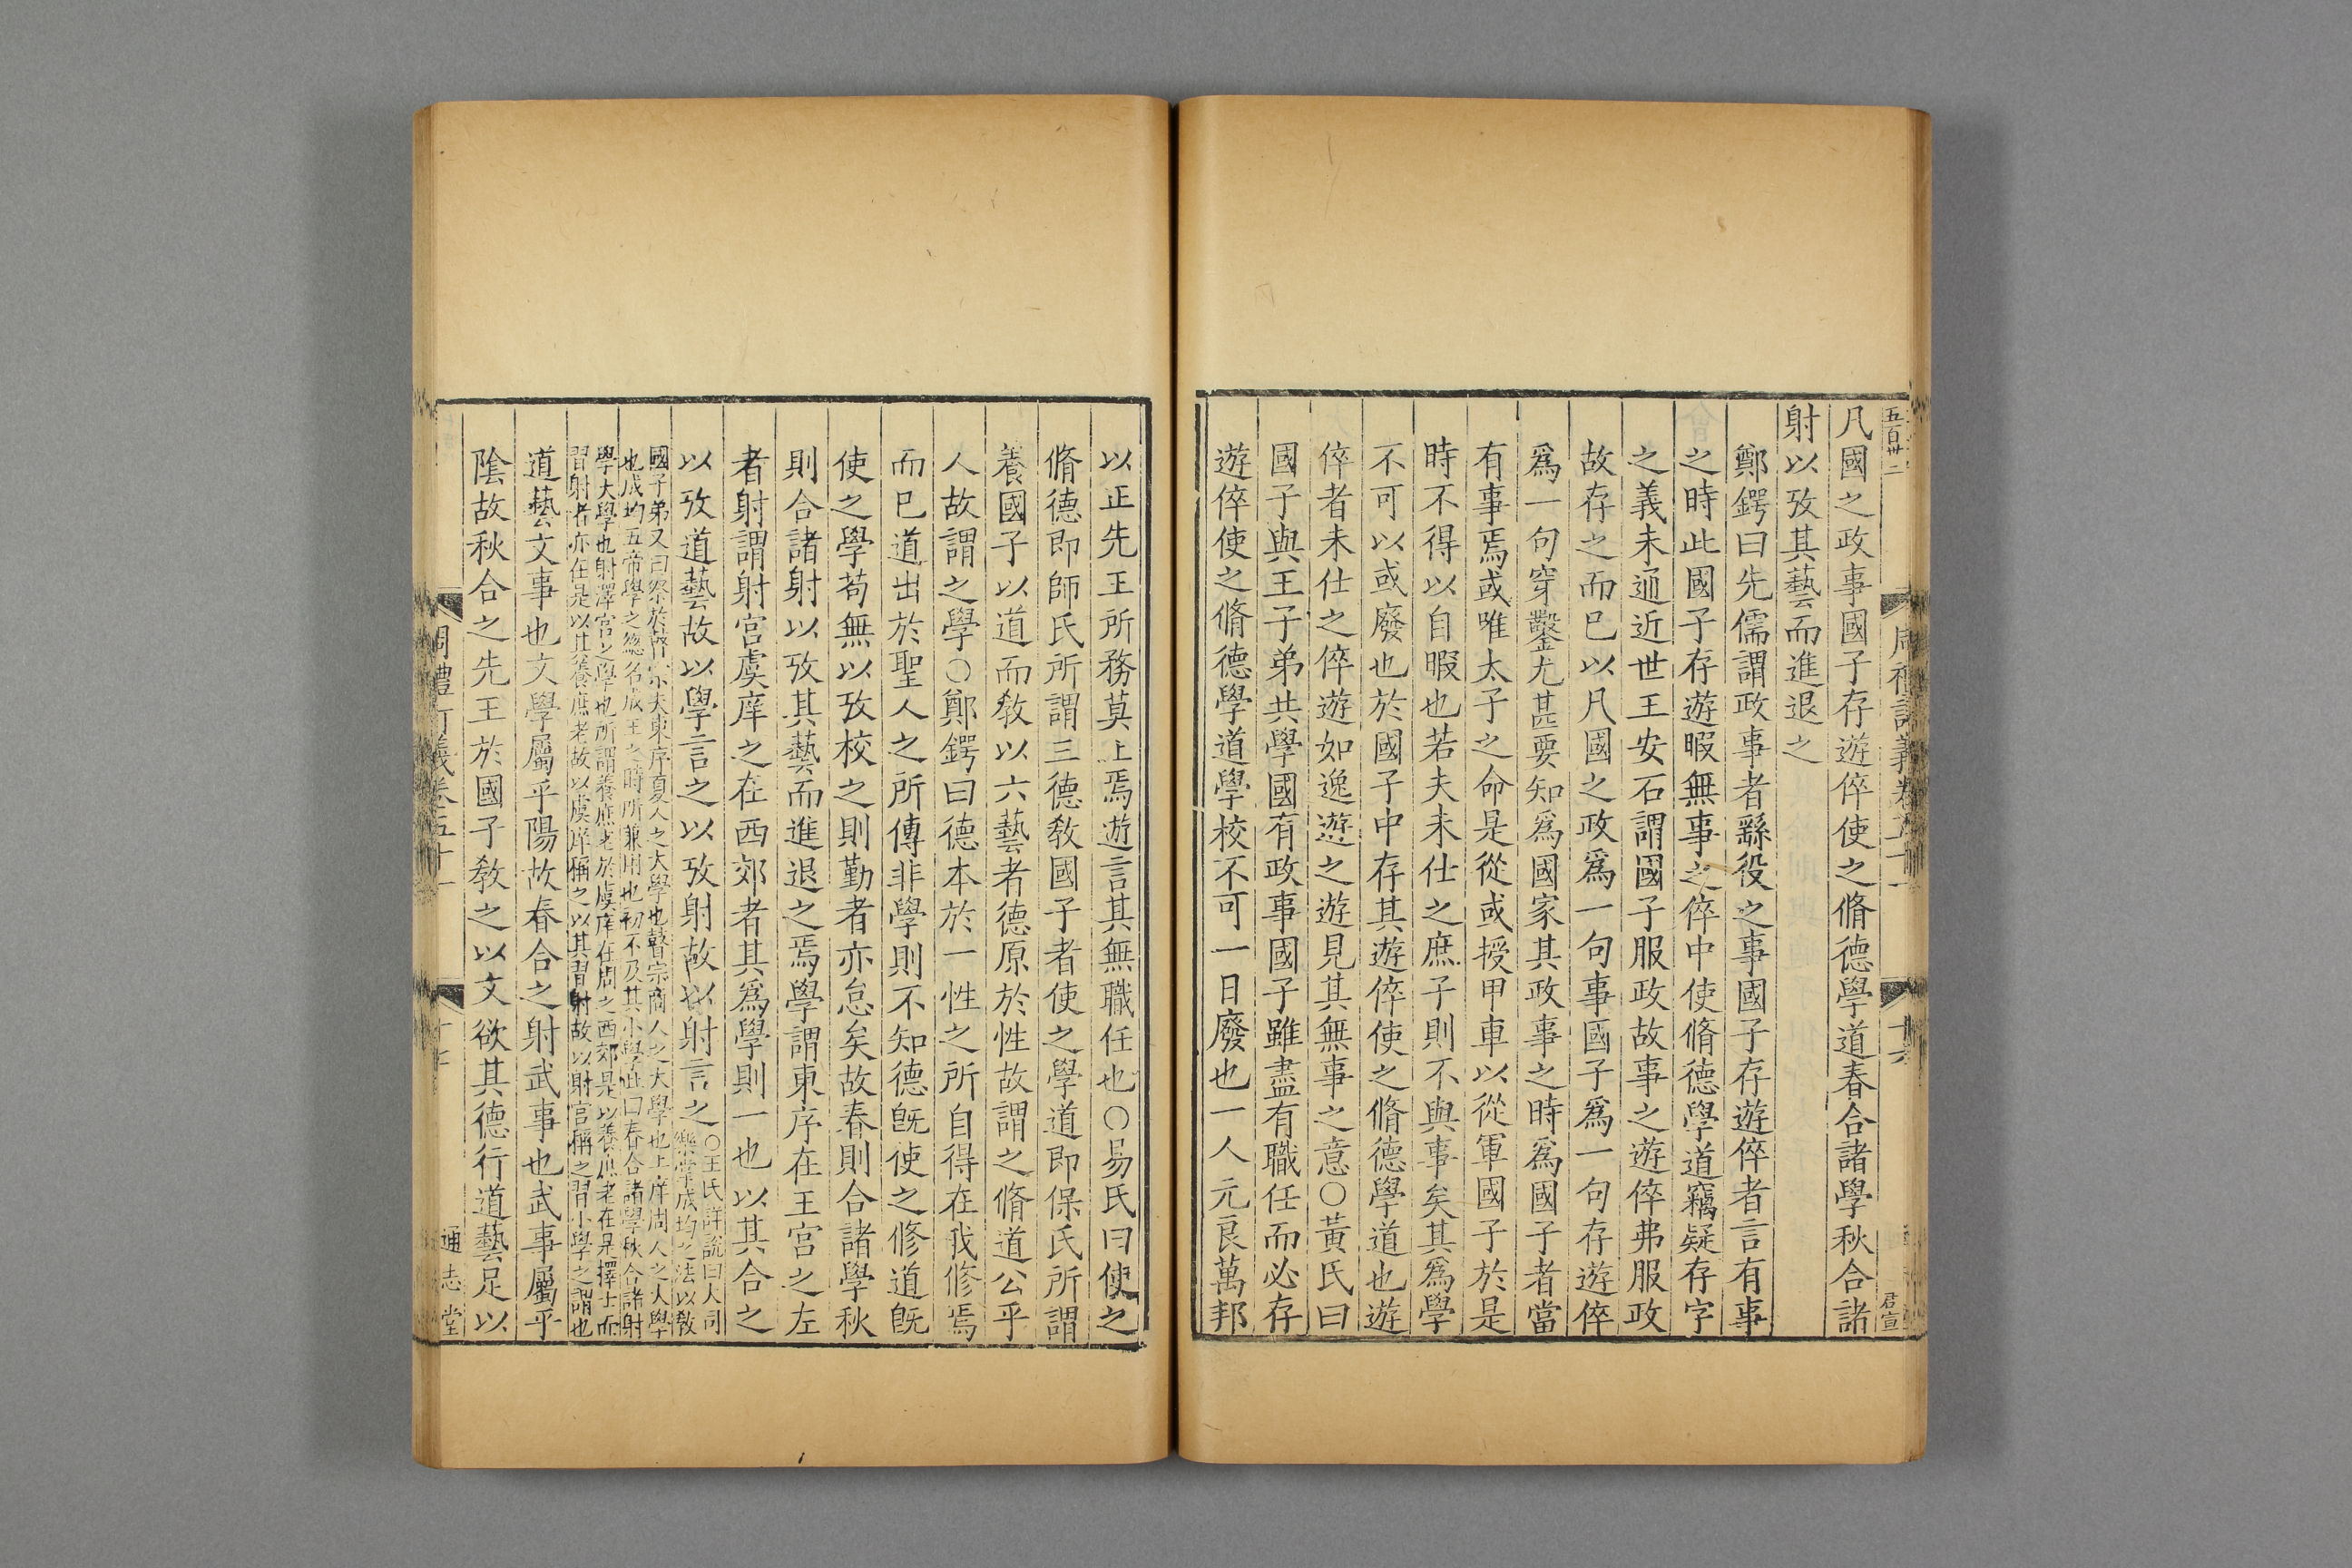 五百卅二
周禮訂義卷五十一
十六
君宣
凡國之政事國子存遊倅使之脩德學道春合諸學秋合諸
射以攷其藝而進退之
鄭鍔曰先儒謂政事者繇役之事國子存遊倅者言有事
之時此國子存遊暇無事之倅中使脩德學道竊疑存字
之義未通近世王安石謂國子服政故事之遊倅弗服政
故存之而已以凡國之政爲一句事國子爲一句存遊倅
爲一句穿鑿尤甚要知爲國家其政事之時爲國子者當
有事焉或唯太子之命是從或授甲車以從軍國子於是
時不得以自暇也若夫未仕之庶子則不與事矣其爲學
不可以或廢也於國子中存其遊倅使之脩德學道也遊
倅者未仕之倅遊如逸遊之遊見其無事之意○黃氏曰
國子與王子弟共學國有政事國子雖盡有職任而必存
遊倅使之脩德學道學校不可一日廢也一人元良萬邦
以正先王所務莫上焉遊言其無職任也○易氏曰使之
脩德即師氏所謂三德敎國子者使之學道即保氏所謂
養國子以道而敎以六藝者德原於性故謂之脩道公乎
人故謂之學○鄭鍔曰德本於一性之所自得在我修焉
而已道出於聖人之所傳非學則不知德旣使之修道旣
使之學苟無以攷校之則勤者亦怠矣故春則合諸學秋
則合諸射以攷其藝而進退之焉學謂東序在王宮之左
者射謂射宮虞庠之在西郊者其爲學則一也以其合之
以攷道藝故以學言之以攷射故以射言之○王氏詳說曰大司
樂掌成均之法以敎
國子弟又曰祭於瞽宗夫東序夏人之大學也瞽宗商人之大學也上庠周人之大學
也成均五帝學之總名成王之時所兼用也初不及其小學此曰春合諸學秋合諸射
學大學也射澤宮之學也所謂養庶老於虞庠在周之西郊是以養庶老在是擇士而
習射者亦在是以其養庶老故以虞庠稱之以其習射故以射宮稱之習小學之謂也
道藝文事也文學屬乎陽故春合之射武事也武事屬乎
陰故秋合之先王於國子敎之以文欲其德行道藝足以
周禮訂義卷五十一
十七
通志堂